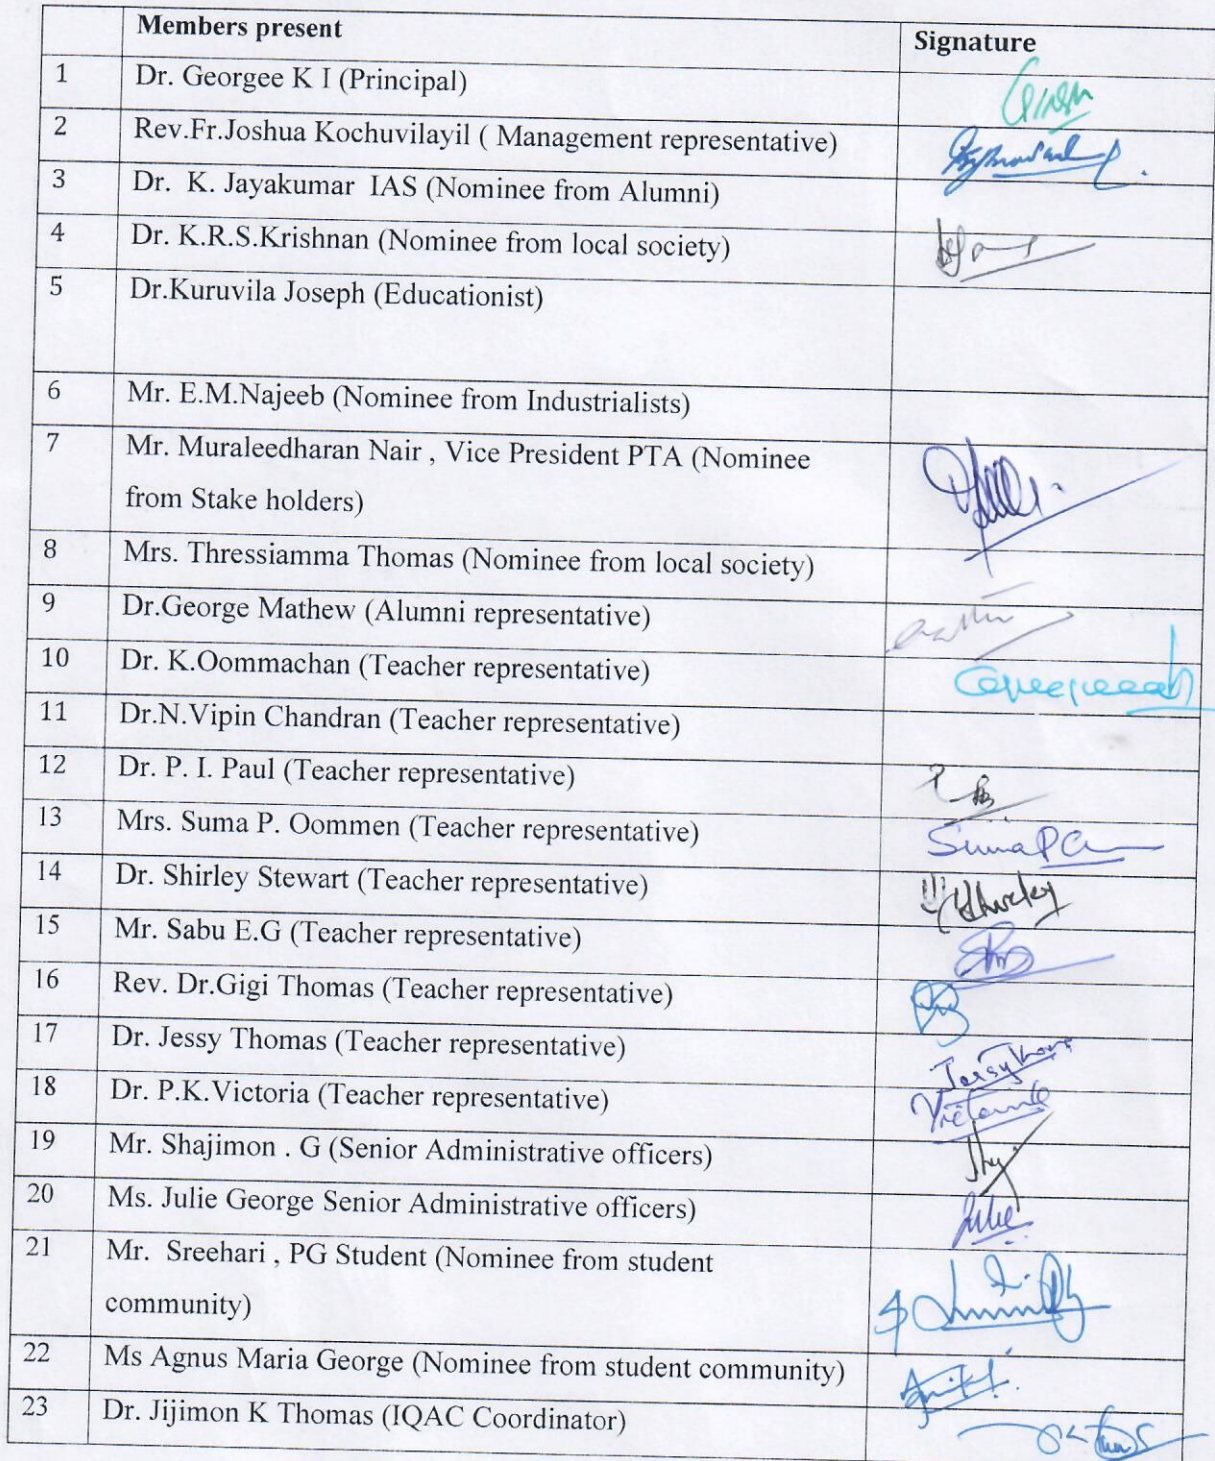 Members present Signature
1 Dr. Georgee K I (Principal)
2 Rev.Fr.Joshua Kochuvilayil ( Management representative)
3 Dr. K. Jayakumar IAS (Nominee from Alumni)
4 Dr. K.R.S.Krishnan (Nominee from local society)
5 Dr.Kuruvila Joseph (Educationist)
6 Mr. E.M.Najeeb (Nominee from Industrialists)
7 Mr. Muraleedharan Nair , Vice President PTA (Nominee
from Stake holders)
8 Mrs. Thressiamma Thomas (Nominee from local society)
9 Dr.George Mathew (Alumni representative)
10 Dr. K.Oommachan (Teacher representative)
11 Dr.N.Vipin Chandran (Teacher representative)
12 Dr. P. I. Paul (Teacher representative)
13 Mrs. Suma P. Oommen (Teacher representative)
14 Dr. Shirley Stewart (Teacher representative)
15 Mr. Sabu E.G (Teacher representative)
16 Rev. Dr.Gigi Thomas (Teacher representative)
17 Dr. Jessy Thomas (Teacher representative)
18 Dr. P.K.Victoria (Teacher representative)
19 Mr. Shajimon . G (Senior Administrative officers)
20 Ms. Julie George Senior Administrative officers) Julie
21 Mr. Sreehari , PG Student (Nominee from student
community)
22 Ms Agnus Maria George (Nominee from student community)
23 Dr. Jijimon K Thomas (IQAC Coordinator)